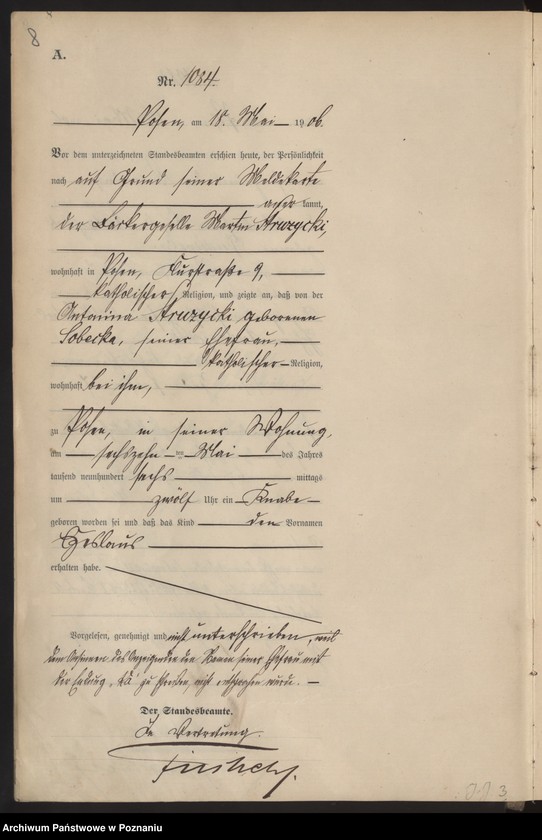 8
A.
Nr. 1084.
Posen, am 18. Mai 1906.
Vor dem unterzeichneten Standesbeamten erschien heute, der Persönlichkeit
nach auf Grund seiner Meldekarte
kannt,
der Bäckergeselle Martin Struzycki,
wohnhaft in Posen, Flurstraße 9,
katholischer Religion, und zeigte an, daß von der
Antonina Struzycki geborenen
Sobecka, seiner Ehefrau,
katholischer Religion,
wohnhaft bei ihm,
zu Posen, in seiner Wohnung,
am sechszehn ten Mai des Jahres
tausend neunhundert sechs mittags
um zwölf Uhr ein Knabe
geboren worden sei und daß das Kind den Vornamen
Czeslaus
erhalten habe.
Vorgelesen, genehmigt und nicht unterschrieben, weil
dem des Anzeigenden den Namen seiner Ehefrau mit
der Endung „ka" zu schreiben, nicht entsprochen wurde.
Der Standesbeamte.
In Vertretung.
3
Archiwum Państwowe w Poznaniu